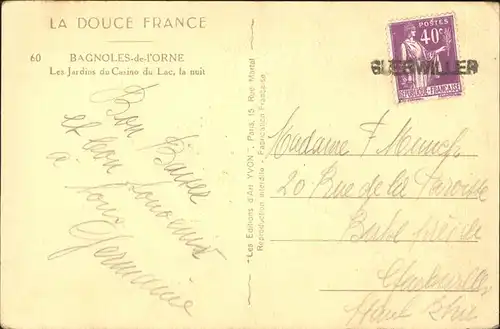 LA DOUCE FRANCE
60 BAGNOLES-de-l'ORNE
Les Jardins du Casino du Lac, la nuit
Bon Baiser
et bon souvenir
à tous
Germaine
"Les Editions d'Art YVON", Paris, 15, Rue Martel
Reproduction interdite - Fabrication Française
POSTES
40c
REPUBLIQUE-FRANÇAISE
GUEBWILLER
Madame F Munch
20 Rue de la Paroisse
Haut Rhin